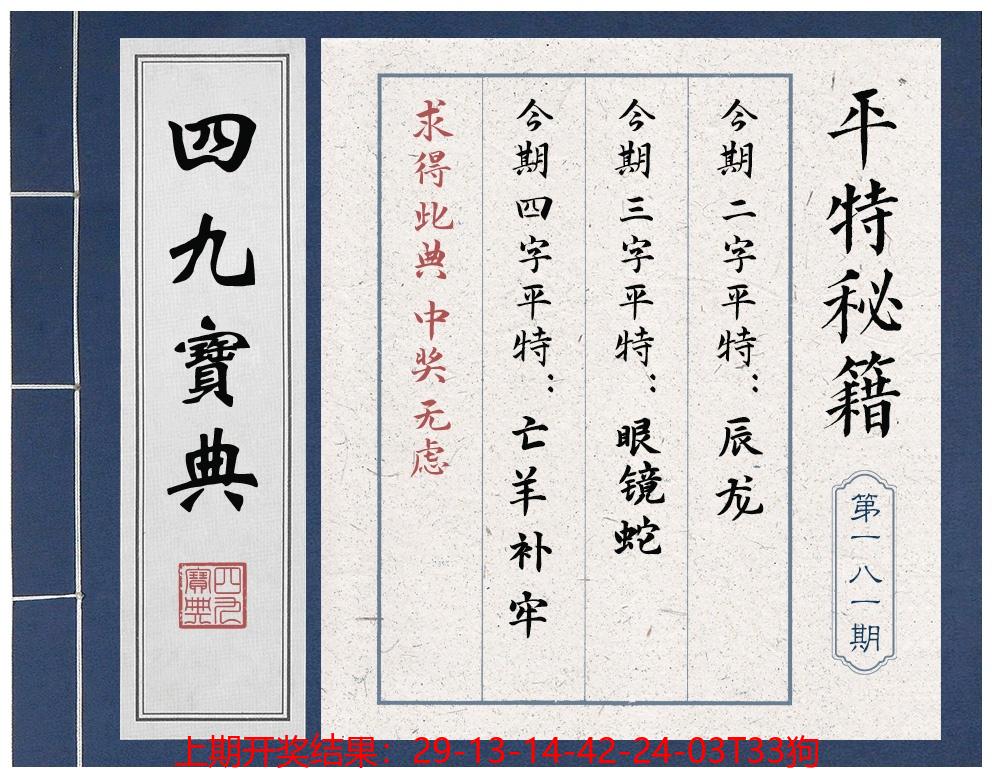 平特秘籍
第一八一期
今期二字平特：辰龙
今期三字平特：眼镜蛇
今期四字平特：亡羊补牢
求得此典 中奖无虑
四九寶典
四九寶典
上期开奖结果：29-13-14-42-24-03T33狗